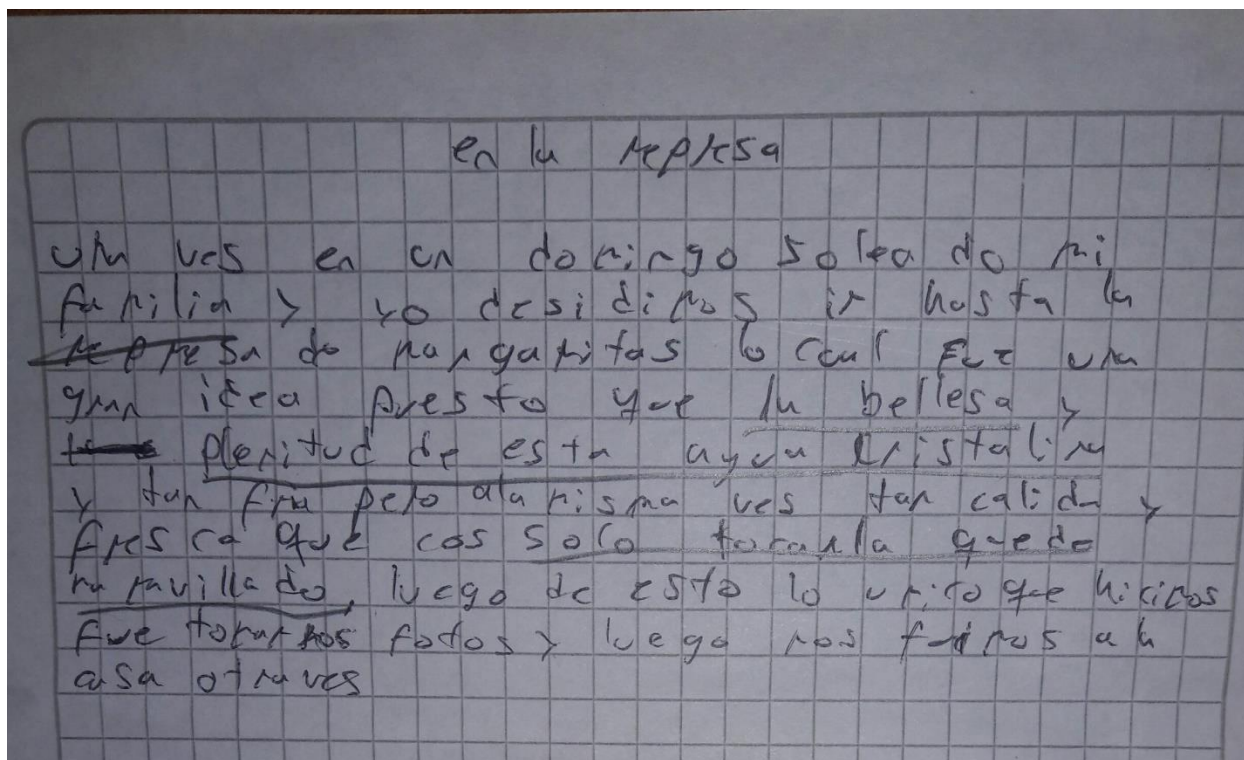 en la represa
una ves en un domingo soleado mi
familia y yo desidimos ir hasta la
represa de margaritas lo cual fue una
gran idea puesto que la bellesa y
plenitud de esta agua cristalina
y tan fria pero ala misma ves tan calida y
fresca que con solo tocarla quede
maravillado, luego de esto lo unico que hicimos
fue tomarnos fotos y luego nos fuimos a la
casa otra ves